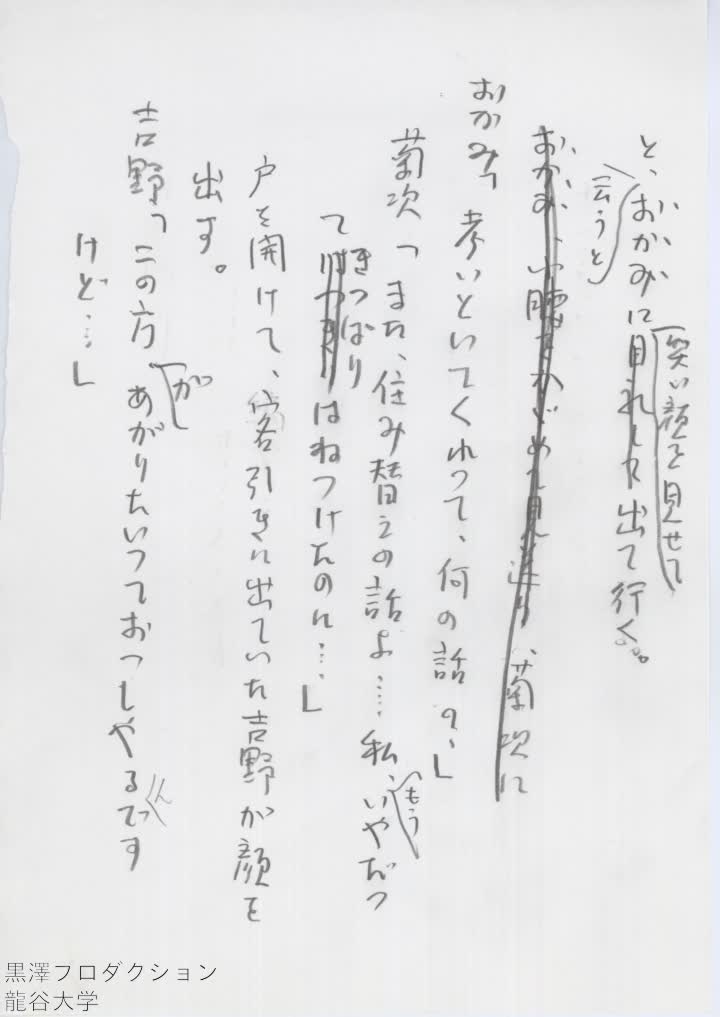 と、おかみに目礼して出て行く。
云うと
笑い顔を見せて
おかみ、小腰をかがめて見送り、菊次に
おかみ「考いといてくれって、何の話の、」
菊次「また、住み替えの話よ……私、いやだっ
もう
て
きっぱり
はねつけたのに…」
戸を開けて、客引きに出ていた吉野が顔を
出す。
吉野「この方あがりたいっておっしやるです
が
ん
けど…」
黒澤プロダクション
龍谷大学